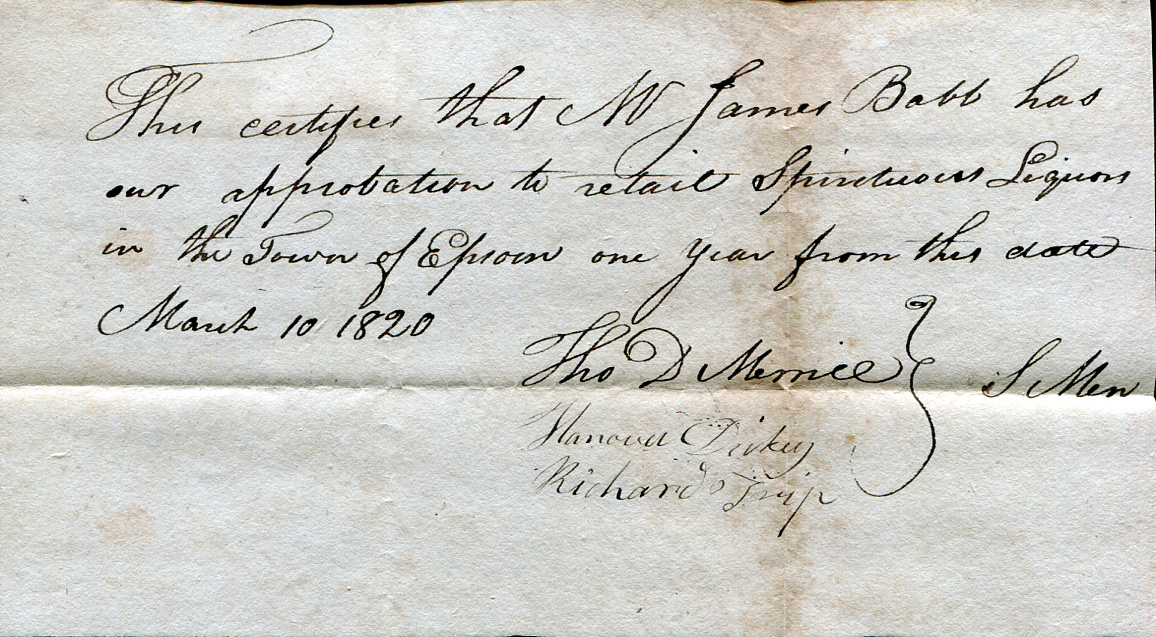 This certifies that Mr James Babb has
our approbation to retail Spirituous Liquors
in the Town of Epsom one year from this date
March 10 1820
Tho D Merrill } S Men
Hanover Dickey
Richard Tripp